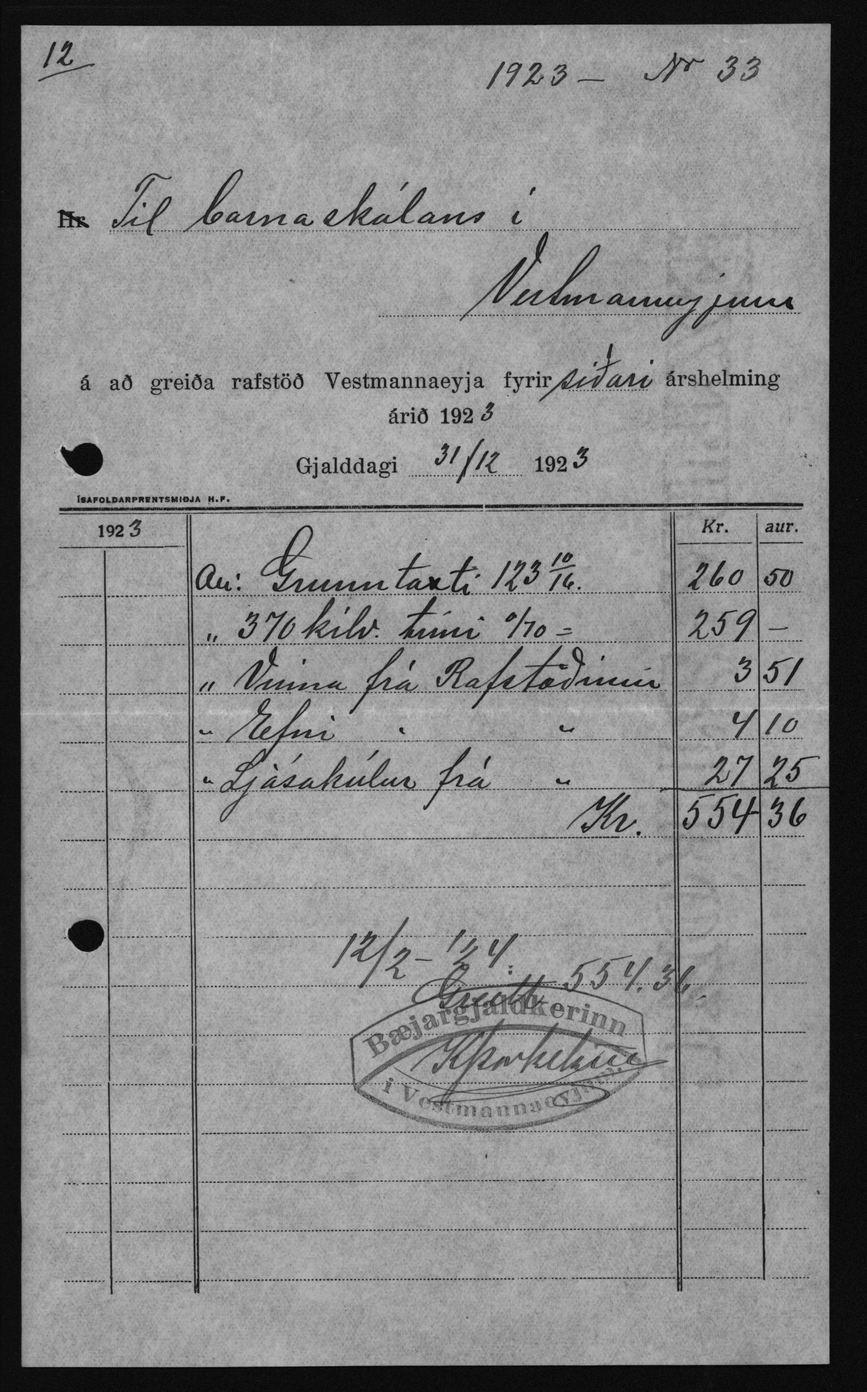 12
1923 – Nr 33
Hr. Til barnaskólans í
Vestmannaeyjum
á að greiða rafstöð Vestmannaeyja fyrir síðari árshelming
árið 1923
Gjalddagi 31/12 1923
ÍSAFOLDARPRENTSMIÐJA H.F.
1923 Kr. aur.
An: Grunntaxti 123 10/16. 260 50
„ 370 kílv. tími 0/70 = 259 –
„ Vinna frá Rafstöðinni 3 51
„ Efni „ „ 4 10
„ Ljósakúlur frá „ 27 25
Kr. 554 36
12/2 – '24.
Greitt 554.36.
Bæjargjaldkerinn
í Vestmannaeyjum